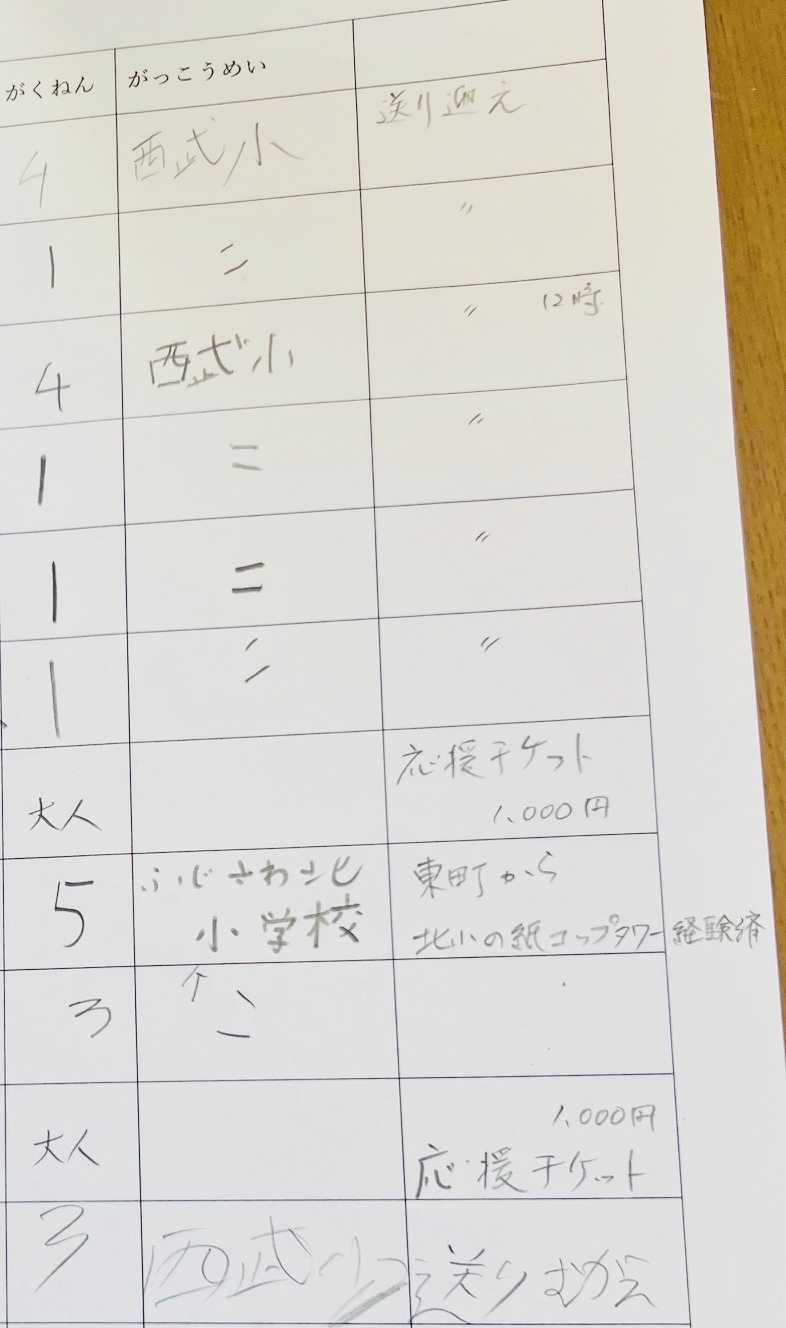 がくねん がっこうめい
4 西武小 送り迎え
1 〃 〃
4 西武小 〃 12時
1 〃 〃
1 〃 〃
1 〃 〃
大人 応援チケット
1,000円
5 ふじさわ北 東町から
小学校 北小の紙コップタワー経験済
3 ↑〃
大人 1,000円
応援チケット
3 西武小 送りむかえ